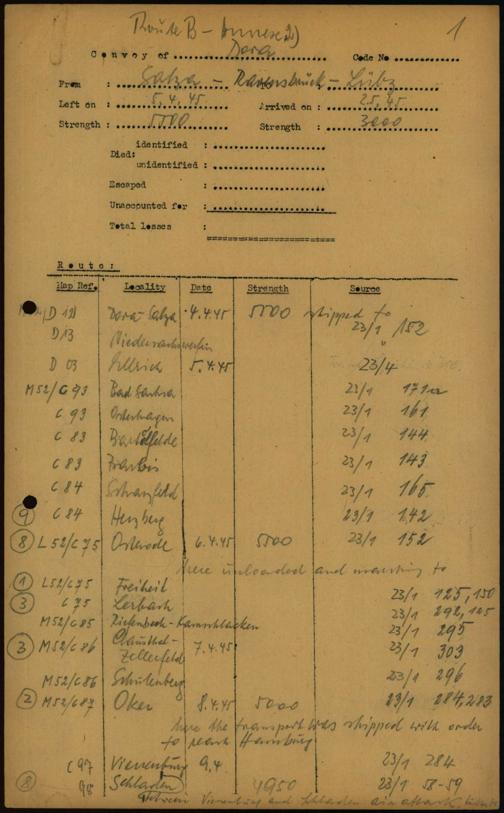 Route B - Annexe 2)
1
Convoy of Dora Code No
From : Salza - Ravensbrück - Lübz
Left on : 5.4.45 Arrived on : 2.5.45
Strength : 5000 Strength : 3000
Died: identified :
unidentified :
Escaped :
Unaccounted for :
Total losses :
Route:
Map Ref. Locality Date Strength Source
D 13 Dora-Salza 4.4.45 5000 shipped to 23/1 152
D13 Niedersachswerfen "
D 03 Ellrich 5.4.45 23/4
M52/C 93 Bad Sachsa 23/1 171a
C 93 Osterhagen 23/1 161
C 83 Bartolfelde 23/1 144
C 83 23/1 143
C 84 Scharzfeld 23/1 165
9 C 84 Herzberg 23/1 142
8 L 52/C 75 Osterode 6.4.45 5000 23/1 152
here unloaded and marching to
1 L52/C75 Freiheit 23/1 125, 150
3 C 75 Lerbach 23/1 292, 125
M52/C85 Riefenbeck-Kamschlacken 23/1 295
3 M52/C86 Clausthal-Zellerfeld 7.4.45 23/1 303
M52/C86 Schulenberg 23/1 296
2 M52/C87 Oker 8.4.45 5000 23/1 284, 283
here the transport was shipped with order
to reach Hamburg
C 97 Vienenburg 9.4 23/1 284
8 98 Schladen 4950 23/1 58-59
Between Vienenburg and Schladen air attack,